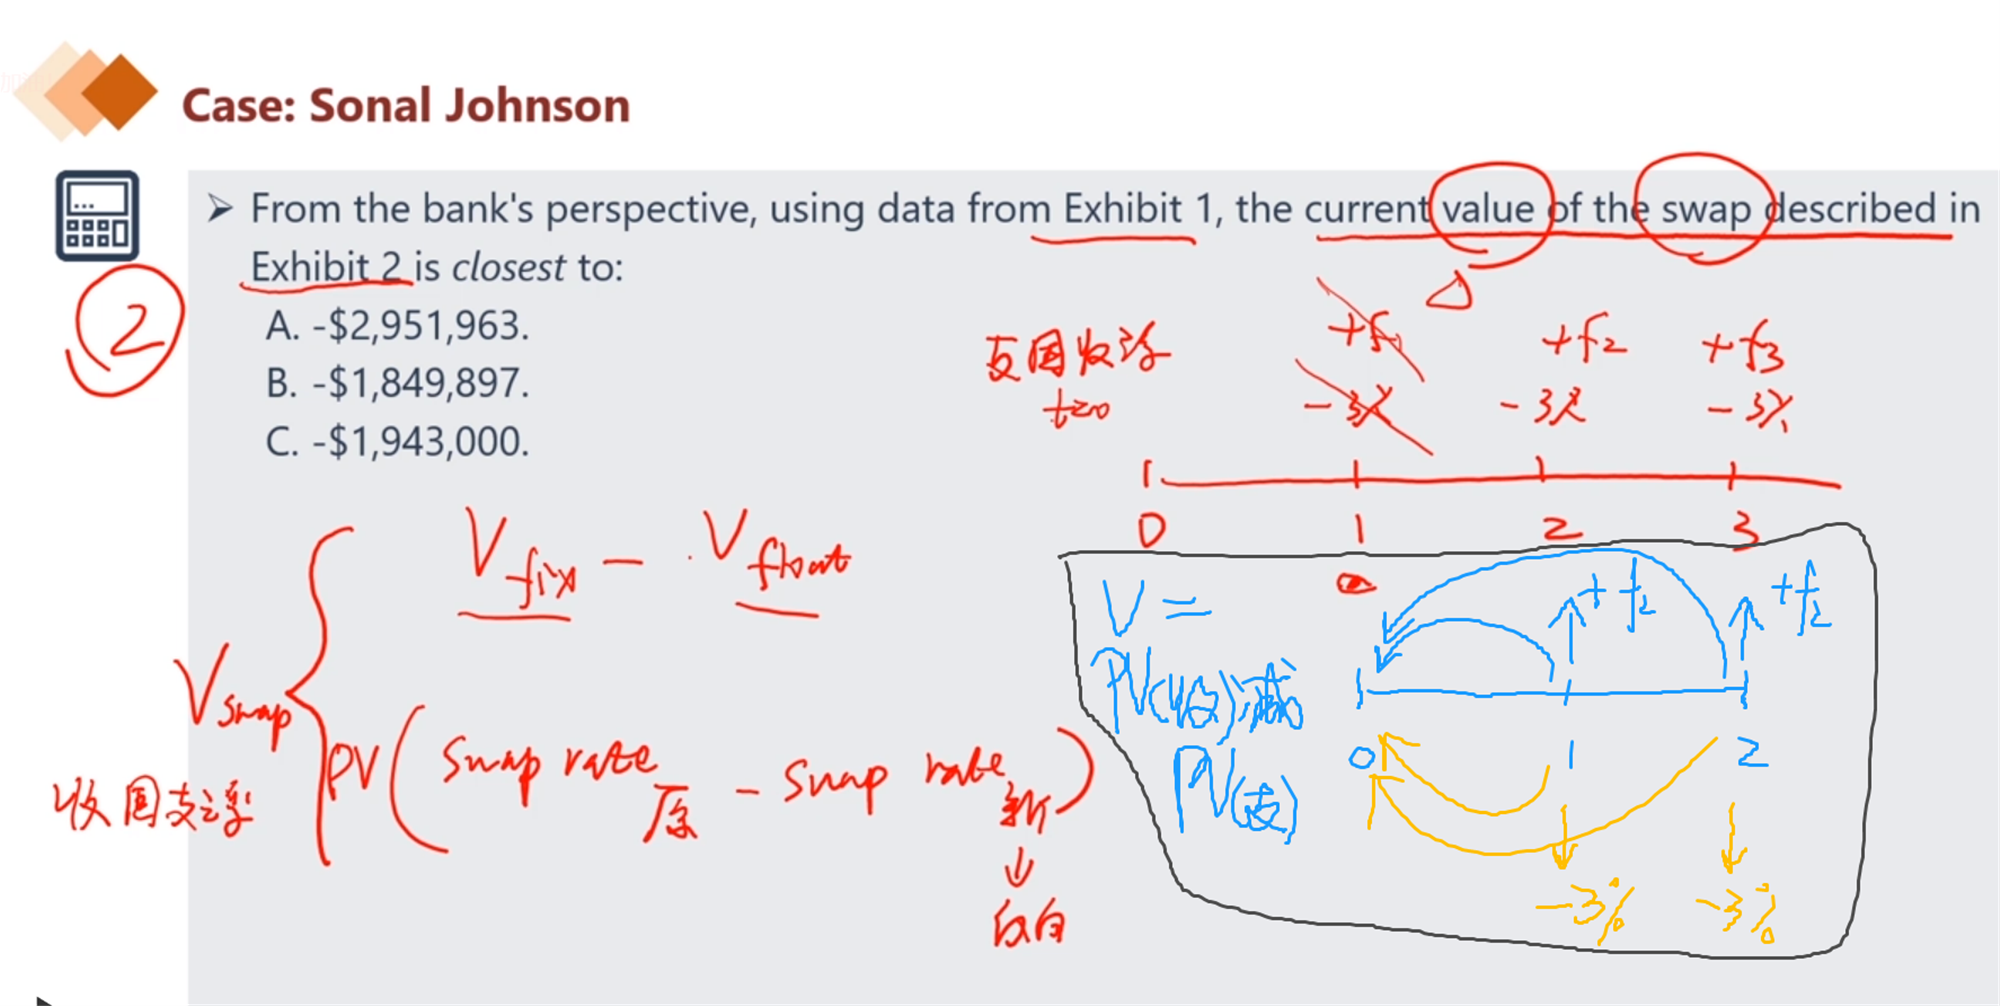 Case: Sonal Johnson
➤ From the bank's perspective, using data from Exhibit 1, the current value of the swap described in
Exhibit 2 is closest to:
A. -$2,951,963.
B. -$1,849,897.
C. -$1,943,000.
2
支固收浮
t=0
+f1
-3%
+f2
-3%
+f3
-3%
0 1 2 3
0
V fix - V float
V swap
收固支浮
PV ( swap rate 原 - swap rate 新 )
↓
反向
V =
PV(收)减
PV(支)
+f2 +f2
0 1 2
-3% -3%